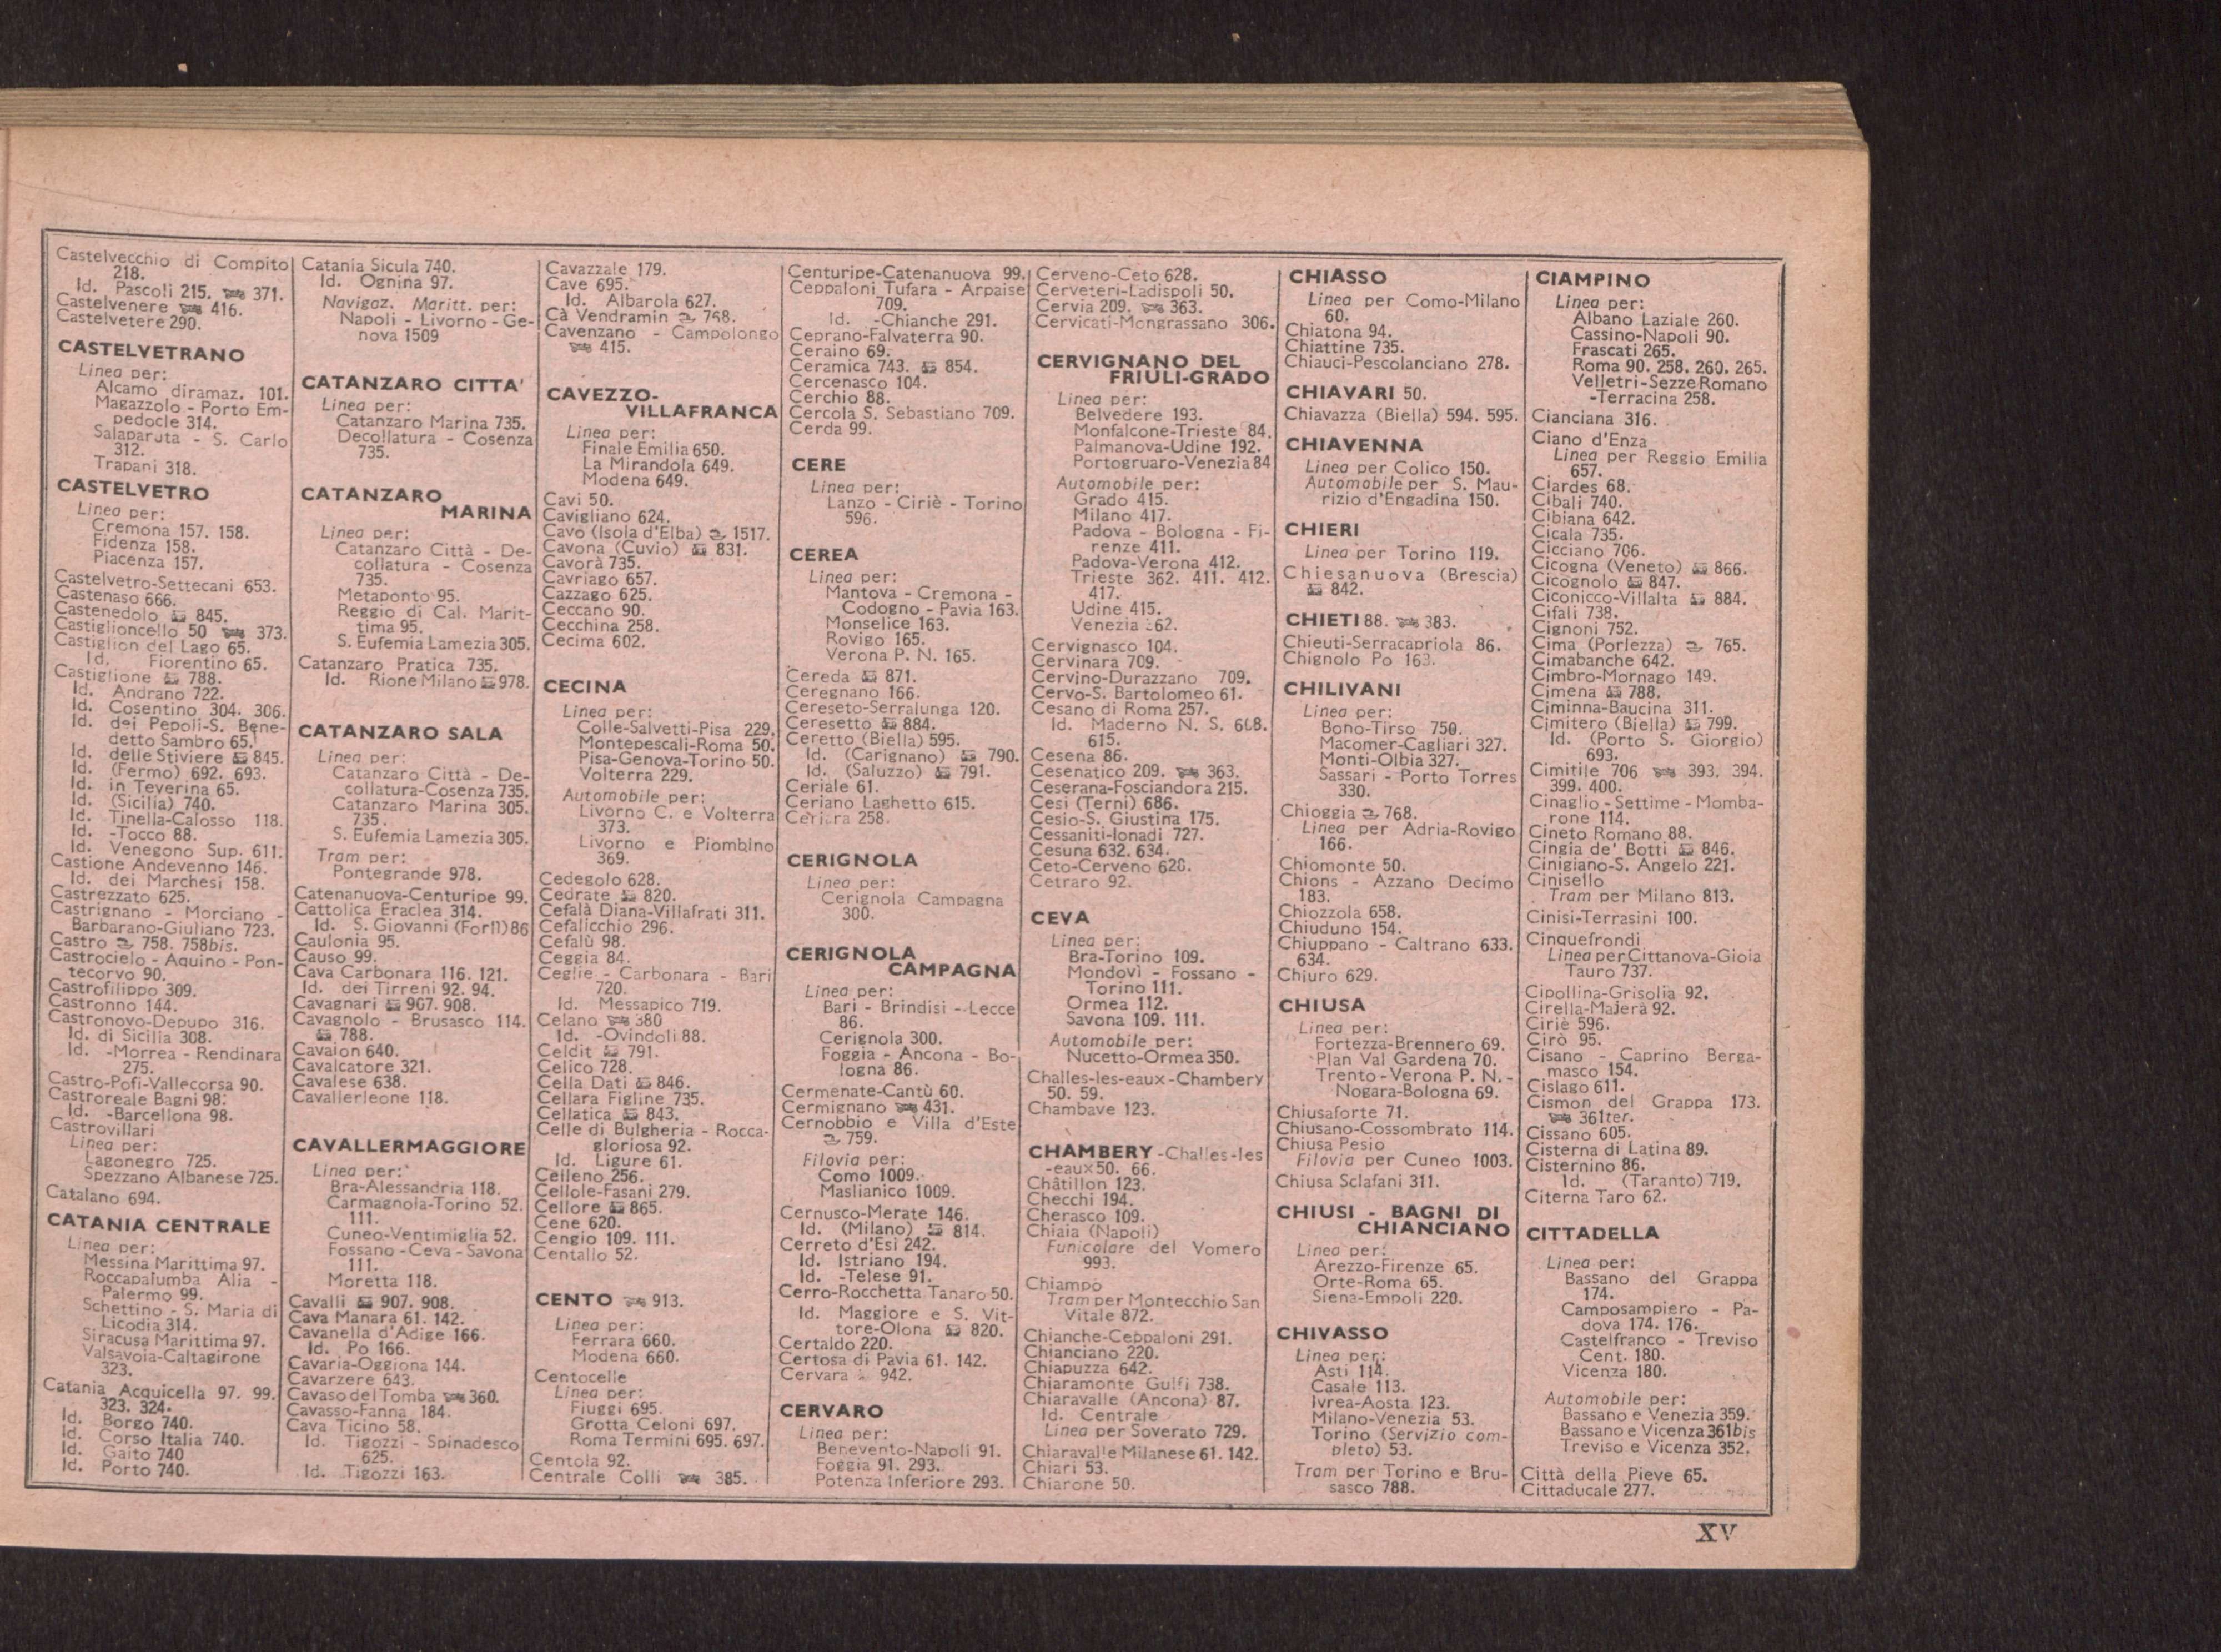 Castelvecchio di Compito
218.
Id. Pascoli 215. 371.
Castelvenere 416.
Castelvetere 290.
CASTELVETRANO
Linea per:
Alcamo diramaz. 101.
Magazzolo - Porto Em-
pedocle 314.
Salaparuta - S. Carlo
312.
Trapani 318.
CASTELVETRO
Linea per:
Cremona 157. 158.
Fidenza 158.
Piacenza 157.
Castelvetro-Settecani 653.
Castenaso 666.
Castenedolo 845.
Castiglioncello 50 373.
Castiglion del Lago 65.
Id. Fiorentino 65.
Castiglione 788.
Id. Andrano 722.
Id. Cosentino 304. 306.
Id. dei Pepoli-S. Bene-
detto Sambro 65.
Id. delle Stiviere 845.
Id. (Fermo) 692. 693.
Id. in Teverina 65.
Id. (Sicilia) 740.
Id. Tinella-Calosso 118.
Id. -Tocco 88.
Id. Venegono Sup. 611.
Castione Andevenno 146.
Id. dei Marchesi 158.
Castrezzato 625.
Castrignano - Morciano -
Barbarano-Giuliano 723.
Castro 758. 758bis.
Castrocielo - Aquino - Pon-
tecorvo 90.
Castrofilippo 309.
Castronno 144.
Castronovo-Depupo 316.
Id. di Sicilia 308.
Id. -Morrea - Rendinara
275.
Castro-Pofi-Vallecorsa 90.
Castroreale Bagni 98.
Id. -Barcellona 98.
Castrovillari
Linea per:
Lagonegro 725.
Spezzano Albanese 725.
Catalano 694.
CATANIA CENTRALE
Linea per:
Messina Marittima 97.
Roccapalumba Alia -
Palermo 99.
Schettino - S. Maria di
Licodia 314.
Siracusa Marittima 97.
Valsavoia-Caltagirone
323.
Catania Acquicella 97. 99.
323. 324.
Id. Borgo 740.
Id. Corso Italia 740.
Id. Gaito 740
Id. Porto 740.
Catania Sicula 740.
Id. Ognina 97.
Navigaz. Maritt. per:
Napoli - Livorno - Ge-
nova 1509
CATANZARO CITTA'
Linea per:
Catanzaro Marina 735.
Decollatura - Cosenza
735.
CATANZARO
MARINA
Linea per:
Catanzaro Città - De-
collatura - Cosenza
735.
Metaponto 95.
Reggio di Cal. Marit-
tima 95.
S. Eufemia Lamezia 305.
Catanzaro Pratica 735.
Id. Rione Milano 978.
CATANZARO SALA
Linea per:
Catanzaro Città - De-
collatura-Cosenza 735.
Catanzaro Marina 305.
735.
S. Eufemia Lamezia 305.
Tram per:
Pontegrande 978.
Catenanuova-Centuripe 99.
Cattolica Eraclea 314.
Id. S. Giovanni (Forlì) 86
Caulonia 95.
Causo 99.
Cava Carbonara 116. 121.
Id. dei Tirreni 92. 94.
Cavagnari 907. 908.
Cavagnolo - Brusasco 114.
788.
Cavaion 640.
Cavalcatore 321.
Cavalese 638.
Cavallerleone 118.
CAVALLERMAGGIORE
Linea per:
Bra-Alessandria 118.
Carmagnola-Torino 52.
111.
Cuneo-Ventimiglia 52.
Fossano - Ceva - Savona
111.
Moretta 118.
Cavalli 907. 908.
Cava Manara 61. 142.
Cavanella d'Adige 166.
Id. Po 166.
Cavaria-Oggiona 144.
Cavarzere 643.
Cavaso del Tomba 360.
Cavasso-Fanna 184.
Cava Ticino 58.
Id. Tigozzi - Spinadesco
625.
Id. Tigozzi 163.
Cavazzale 179.
Cave 695.
Id. Albarola 627.
Cà Vendramin 768.
Cavenzano - Campolongo
415.
CAVEZZO-
VILLAFRANCA
Linea per:
Finale Emilia 650.
La Mirandola 649.
Modena 649.
Cavi 50.
Cavigliano 624.
Cavo (Isola d'Elba) 1517.
Cavona (Cuvio) 831.
Cavorà 735.
Cavriago 657.
Cazzago 625.
Ceccano 90.
Cecchina 258.
Cecima 602.
CECINA
Linea per:
Colle-Salvetti-Pisa 229.
Montepescali-Roma 50.
Pisa-Genova-Torino 50.
Volterra 229.
Automobile per:
Livorno C. e Volterra
373.
Livorno e Piombino
369.
Cedegolo 628.
Cedrate 820.
Cefalà Diana-Villafrati 311.
Cefalicchio 296.
Cefalù 98.
Ceggia 84.
Ceglie - Carbonara - Bari
720.
Id. Messapico 719.
Celano 380
Id. -Ovindoli 88.
Celdit 791.
Celico 728.
Cella Dati 846.
Cellara Figline 735.
Cellatica 843.
Celle di Bulgheria - Rocca-
gloriosa 92.
Id. Ligure 61.
Celleno 256.
Cellole-Fasani 279.
Cellore 865.
Cene 620.
Cengio 109. 111.
Centallo 52.
CENTO 913.
Linea per:
Ferrara 660.
Modena 660.
Centocelle
Linea per:
Fiuggi 695.
Grotta Celoni 697.
Roma Termini 695. 697.
Centola 92.
Centrale Colli 385.
Centuripe-Catenanuova 99.
Ceppaloni Tufara - Arpaise
709.
Id. -Chianche 291.
Ceprano-Falvaterra 90.
Ceraino 69.
Ceramica 743. 854.
Cercenasco 104.
Cerchio 88.
Cercola S. Sebastiano 709.
Cerda 99.
CERE
Linea per:
Lanzo - Ciriè - Torino
596.
CEREA
Linea per:
Mantova - Cremona -
Codogno - Pavia 163.
Monselice 163.
Rovigo 165.
Verona P. N. 165.
Cereda 871.
Ceregnano 166.
Cereseto-Serralunga 120.
Ceresetto 884.
Ceretto (Biella) 595.
Id. (Carignano) 790.
Id. (Saluzzo) 791.
Ceriale 61.
Ceriano Laghetto 615.
258.
CERIGNOLA
Linea per:
Cerignola Campagna
300.
CERIGNOLA
CAMPAGNA
Linea per:
Bari - Brindisi - Lecce
86.
Cerignola 300.
Foggia - Ancona - Bo-
logna 86.
Cermenate-Cantù 60.
Cermignano 431.
Cernobbio e Villa d'Este
759.
Filovia per:
Como 1009.
Maslianico 1009.
Cernusco-Merate 146.
Id. (Milano) 814.
Cerreto d'Esi 242.
Id. Istriano 194.
Id. -Telese 91.
Cerro-Rocchetta Tanaro 50.
Id. Maggiore e S. Vit-
tore-Olona 820.
Certaldo 220.
Certosa di Pavia 61. 142.
Cervara 942.
CERVARO
Linea per:
Benevento-Napoli 91.
Foggia 91. 293.
Potenza Inferiore 293.
Cerveno-Ceto 628.
Cerveteri-Ladispoli 50.
Cervia 209. 363.
Cervicati-Mongrassano 306.
CERVIGNANO DEL
FRIULI-GRADO
Linea per:
Belvedere 193.
Monfalcone-Trieste 84.
Palmanova-Udine 192.
Portogruaro-Venezia 84
Automobile per:
Grado 415.
Milano 417.
Padova - Bologna - Fi-
renze 411.
Padova-Verona 412.
Trieste 362. 411. 412.
417.
Udine 415.
Venezia 362.
Cervignasco 104.
Cervinara 709.
Cervino-Durazzano 709.
Cervo-S. Bartolomeo 61.
Cesano di Roma 257.
Id. Maderno N. S. 608.
615.
Cesena 86.
Cesenatico 209. 363.
Ceserana-Fosciandora 215.
Cesi (Terni) 686.
Cesio-S. Giustina 175.
Cessaniti-Ionadi 727.
Cesuna 632. 634.
Ceto-Cerveno 628.
Cetraro 92.
CEVA
Linea per:
Bra-Torino 109.
Mondovì - Fossano -
Torino 111.
Ormea 112.
Savona 109. 111.
Automobile per:
Nucetto-Ormea 350.
Challes-les-eaux-Chambery
50. 59.
Chambave 123.
CHAMBERY - Challes-les
-eaux 50. 66.
Châtillon 123.
Checchi 194.
Cherasco 109.
Chiaia (Napoli)
Funicolare del Vomero
993.
Chiampo
Tram per Montecchio San
Vitale 872.
Chianche-Ceppaloni 291.
Chianciano 220.
Chiapuzza 642.
Chiaramonte Gulfi 738.
Chiaravalle (Ancona) 87.
Id. Centrale
Linea per Soverato 729.
Chiaravalle Milanese 61. 142.
Chiari 53.
Chiarone 50.
CHIASSO
Linea per Como-Milano
60.
Chiatona 94.
Chiattine 735.
Chiauci-Pescolanciano 278.
CHIAVARI 50.
Chiavazza (Biella) 594. 595.
CHIAVENNA
Linea per Colico 150.
Automobile per S. Mau-
rizio d'Engadina 150.
CHIERI
Linea per Torino 119.
Chiesanuova (Brescia)
842.
CHIETI 88. 383.
Chieuti-Serracapriola 86.
Chignolo Po 163.
CHILIVANI
Linea per:
Bono-Tirso 750.
Macomer-Cagliari 327.
Monti-Olbia 327.
Sassari - Porto Torres
330.
Chioggia 768.
Linea per Adria-Rovigo
166.
Chiomonte 50.
Chions - Azzano Decimo
183.
Chiozzola 658.
Chiuduno 154.
Chiuppano - Caltrano 633.
634.
Chiuro 629.
CHIUSA
Linea per:
Fortezza-Brennero 69.
Plan Val Gardena 70.
Trento - Verona P. N. -
Nogara-Bologna 69.
Chiusaforte 71.
Chiusano-Cossombrato 114.
Chiusa Pesio
Filovia per Cuneo 1003.
Chiusa Sclafani 311.
CHIUSI - BAGNI DI
CHIANCIANO
Linea per:
Arezzo-Firenze 65.
Orte-Roma 65.
Siena-Empoli 220.
CHIVASSO
Linea per:
Asti 114.
Casale 113.
Ivrea-Aosta 123.
Milano-Venezia 53.
Torino (Servizio com-
pleto) 53.
Tram per Torino e Bru-
sasco 788.
CIAMPINO
Linea per:
Albano Laziale 260.
Cassino-Napoli 90.
Frascati 265.
Roma 90. 258. 260. 265.
Velletri-Sezze Romano
-Terracina 258.
Cianciana 316.
Ciano d'Enza
Linea per Reggio Emilia
657.
Ciardes 68.
Cibali 740.
Cibiana 642.
Cicala 735.
Cicciano 706.
Cicogna (Veneto) 866.
Cicognolo 847.
Ciconicco-Villalta 884.
Cifali 738.
Cignoni 752.
Cima (Porlezza) 765.
Cimabanche 642.
Cimbro-Mornago 149.
Cimena 788.
Ciminna-Baucina 311.
Cimitero (Biella) 799.
Id. (Porto S. Giorgio)
693.
Cimitile 706 393. 394.
399. 400.
Cinaglio - Settime - Momba-
rone 114.
Cineto Romano 88.
Cingia de' Botti 846.
Cinigiano-S. Angelo 221.
Cinisello
Tram per Milano 813.
Cinisi-Terrasini 100.
Cinquefrondi
Linea per Cittanova-Gioia
Tauro 737.
Cipollina-Grisolia 92.
Cirella-Majerà 92.
Ciriè 596.
Cirò 95.
Cisano - Caprino Berga-
masco 154.
Cislago 611.
Cismon del Grappa 173.
361ter.
Cissano 605.
Cisterna di Latina 89.
Cisternino 86.
Id. (Taranto) 719.
Citerna Taro 62.
CITTADELLA
Linea per:
Bassano del Grappa
174.
Camposampiero - Pa-
dova 174. 176.
Castelfranco - Treviso
Cent. 180.
Vicenza 180.
Automobile per:
Bassano e Venezia 359.
Bassano e Vicenza 361bis
Treviso e Vicenza 352.
Città della Pieve 65.
Cittaducale 277.
XV